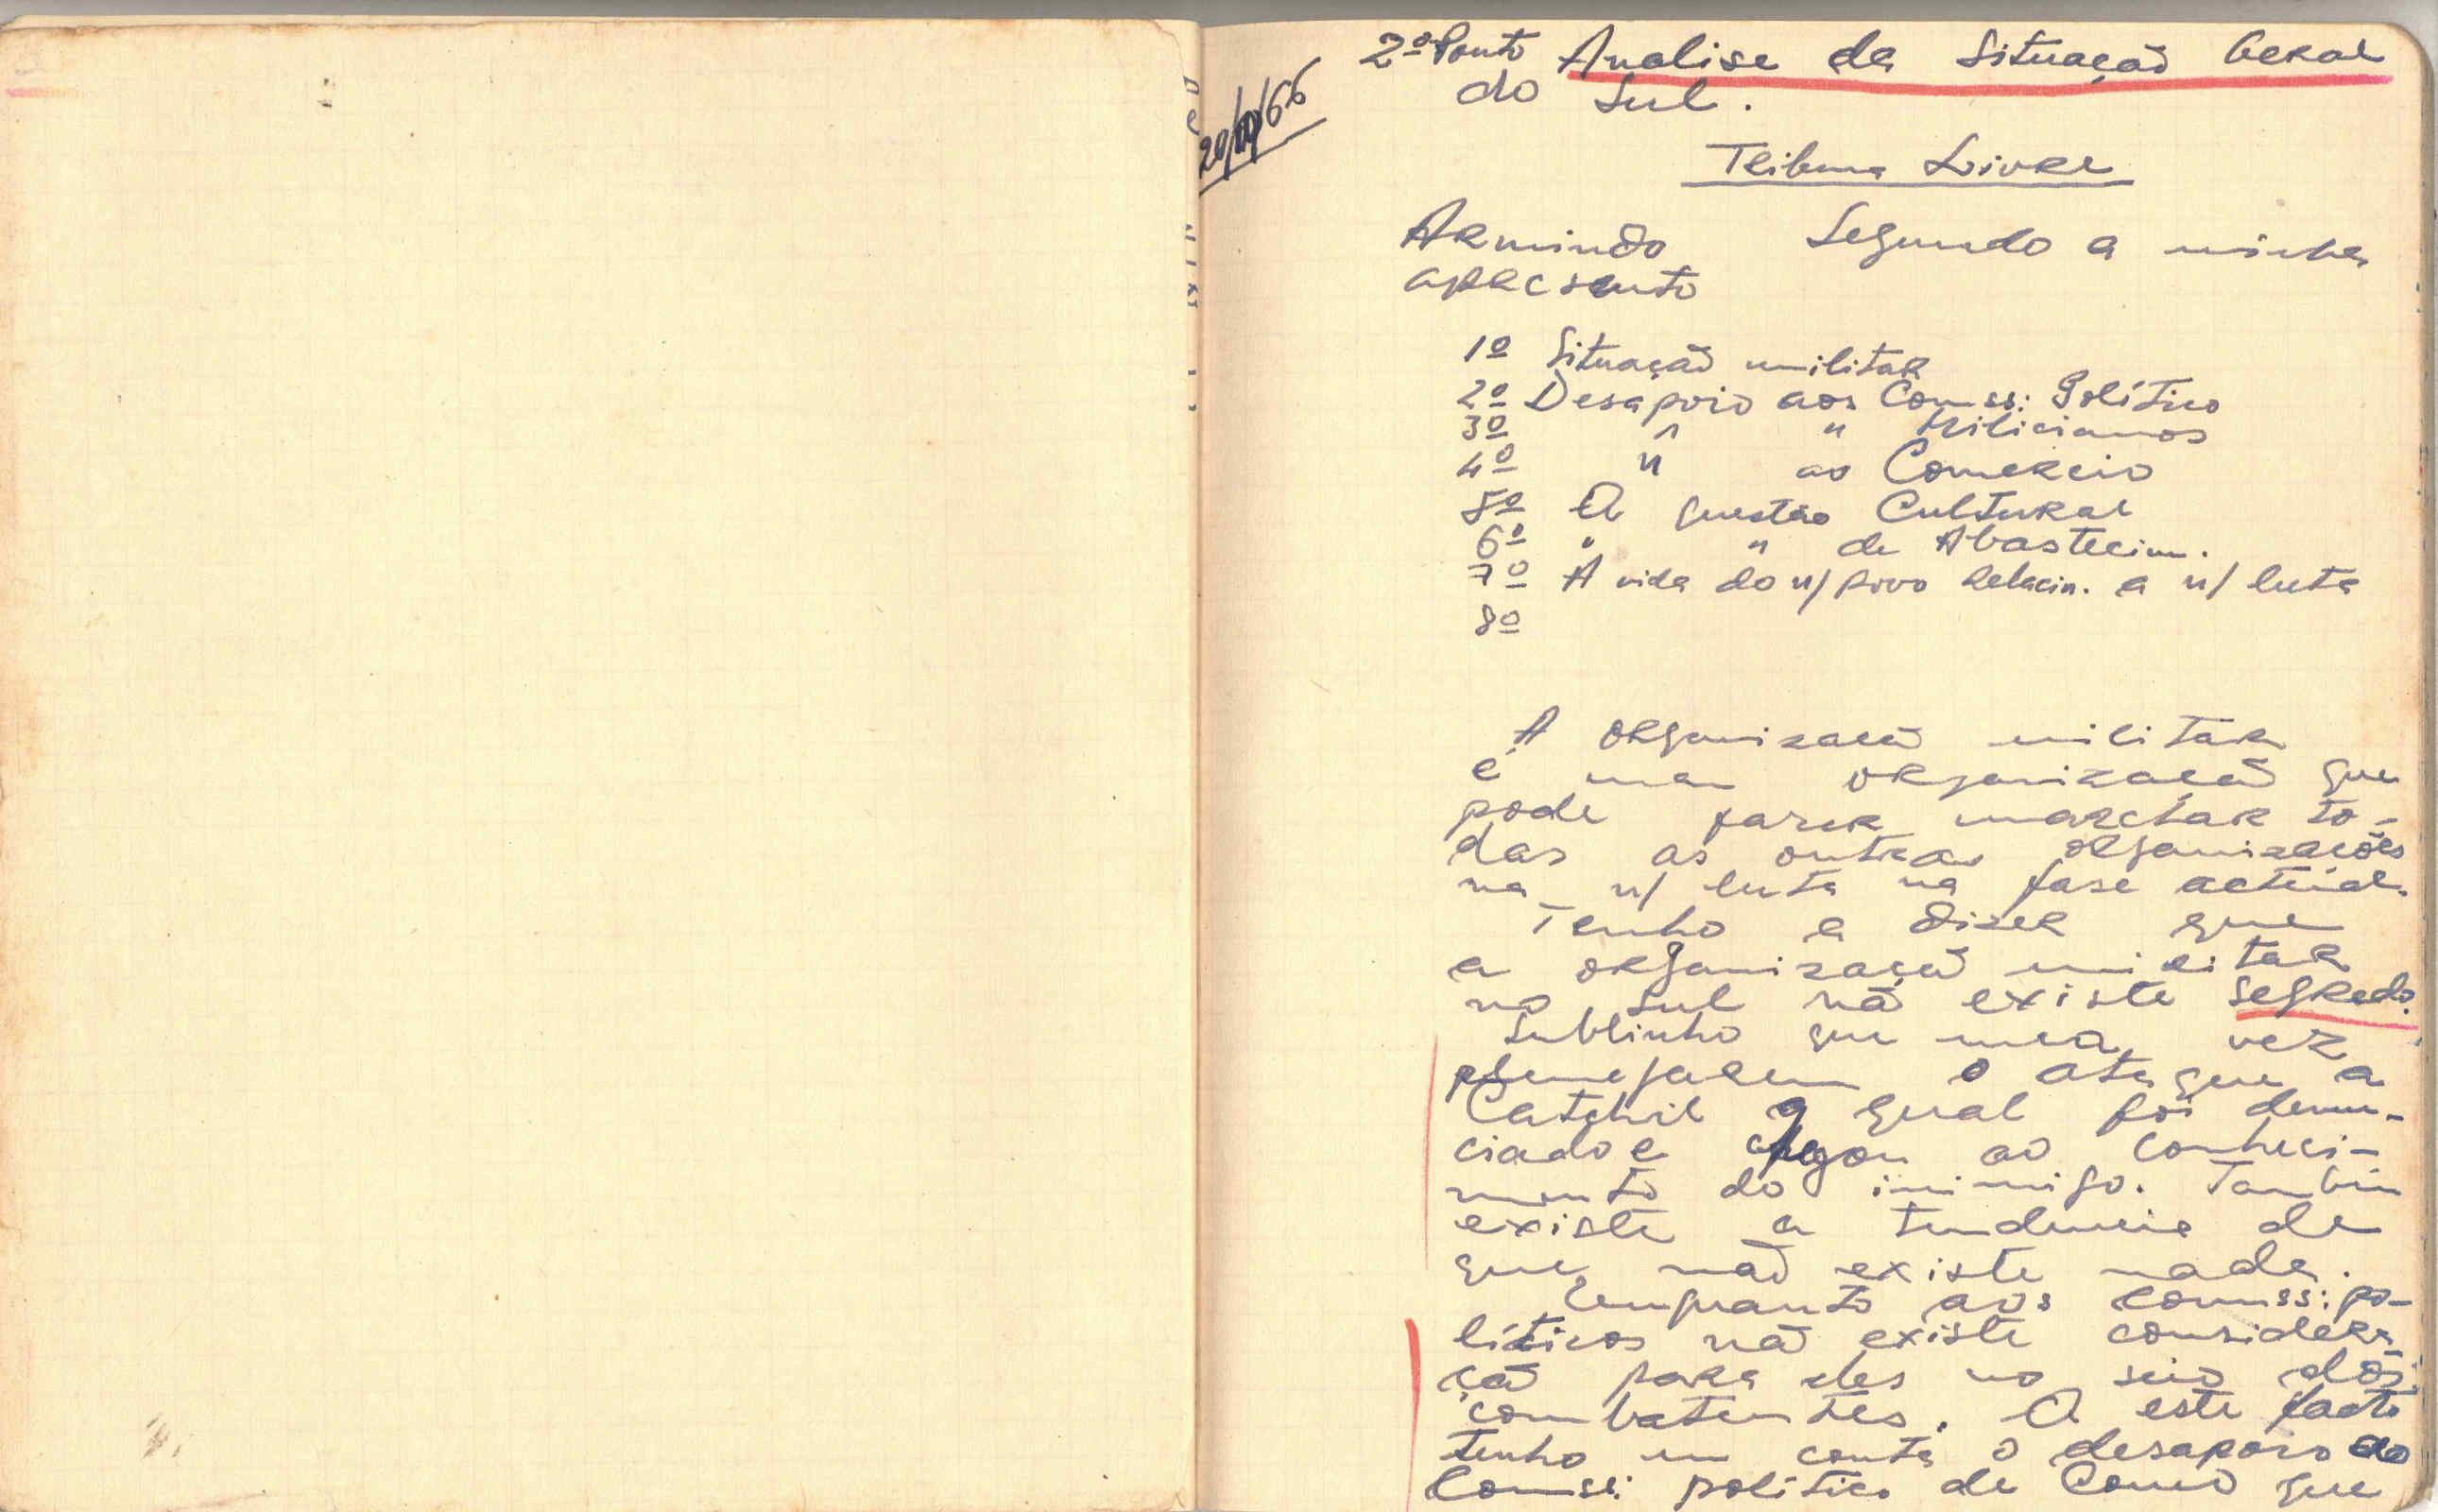 2º Ponto Analise da Situação Geral
do Sul.
20/10/66
Tribuna Livre
Armindo Segundo a minha
apresento
1º Situação militar
2º Desapoio aos Comss: Político
3º " " Milicianos
4º " ao Comercio
5º A questão Cultural
6º " " de Abastecim.
7º A vida do n/ povo relacin. a n/ luta
8º
A organização militar
é uma organização que
pode fazer marchar to-
das as outras organizações
na n/ luta na fase actual.
Tenho a dizer que
a organização militar
no Sul não existe segredo.
Sublinho que uma vez
planejarem o ataque a
Catchil o qual foi denun-
ciado e chegou ao conheci-
mento do inimigo. Também
existe a tendencia de
que não existe nada.
Emquanto aos comss: po-
líticos não existe considera
ção para eles no seio dos
combatentes. A este facto
tenho em conta o desapoio ao
Comss: politico de Como que